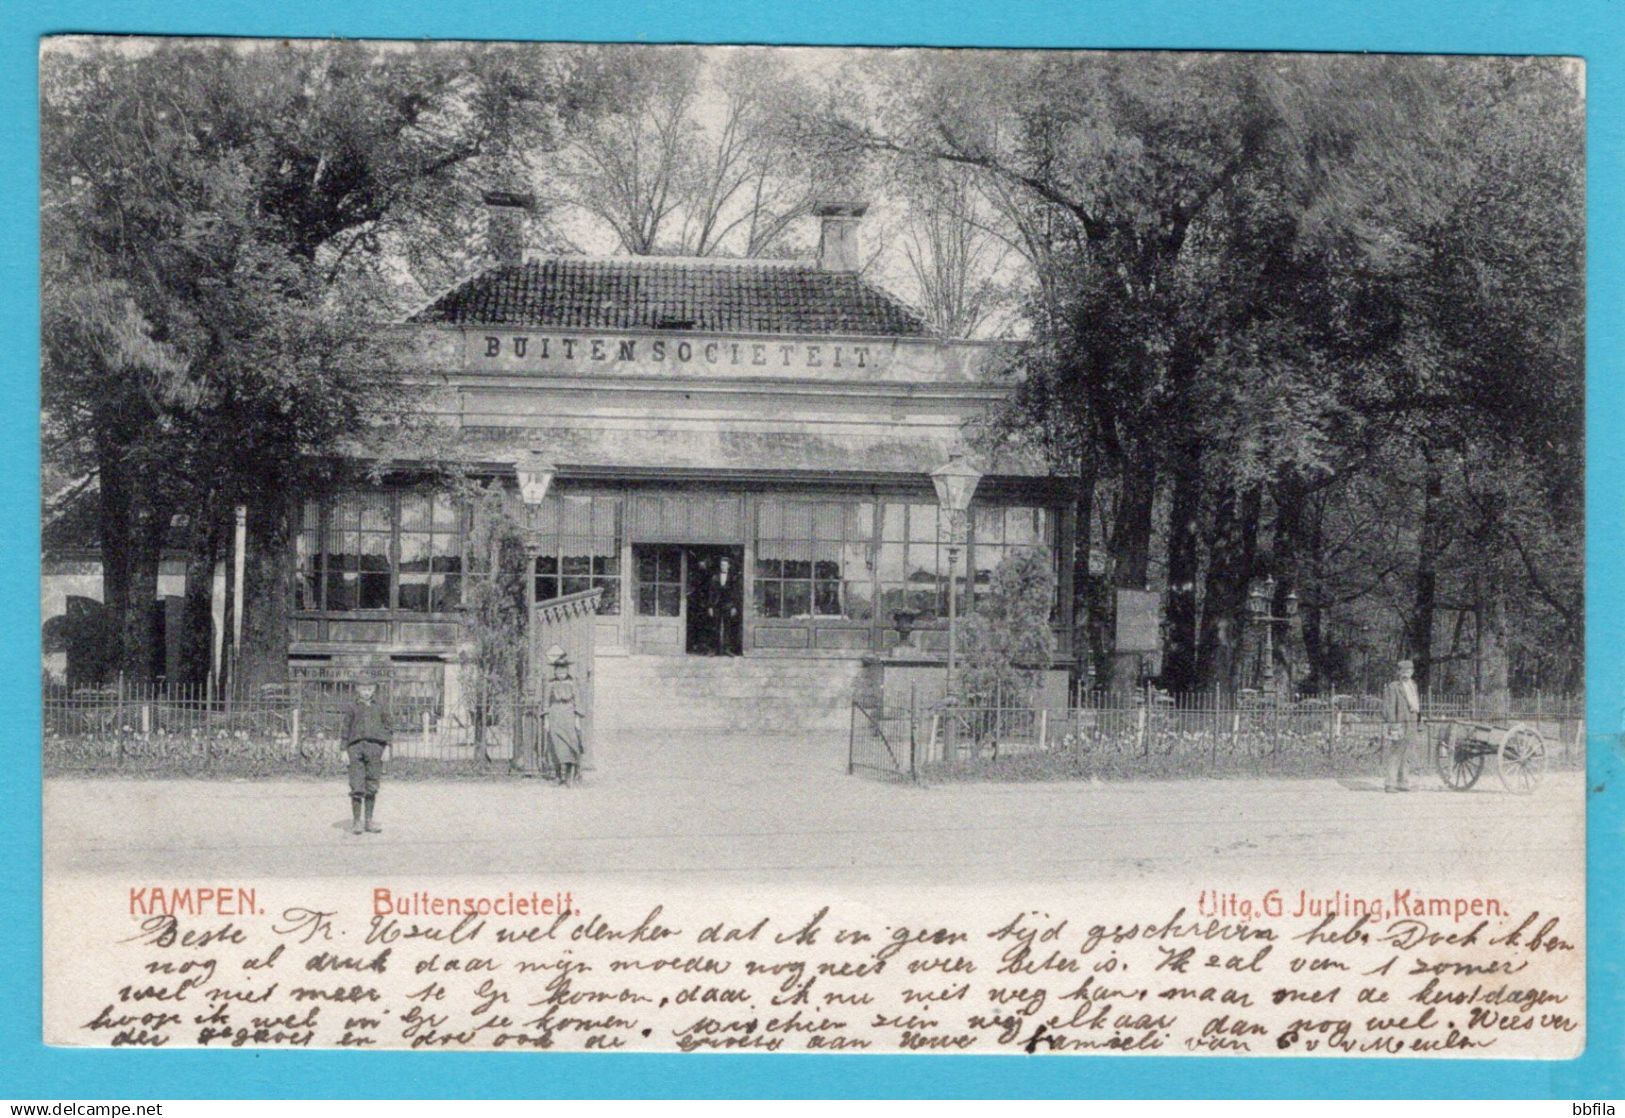 BUITENSOCIETEIT.
KAMPEN. Buitensocieteit. Uitg. G Jurling, Kampen.
Beste Tr. U zult wel denken dat ik in geen tijd geschreven heb. Doch ik ben
nog al druk daar mijn moeder nog niets weer beter is. Ik zal van 't zomer
wel niet meer te Gr komen, daar ik nu niet weg kan. maar met de kerstdagen
hoop ik wel in Gr te komen. Misschien zien wij elkaar dan nog wel. Wees ver
der gegroet en doe ook de groete aan Uwe Familie van
bbfila